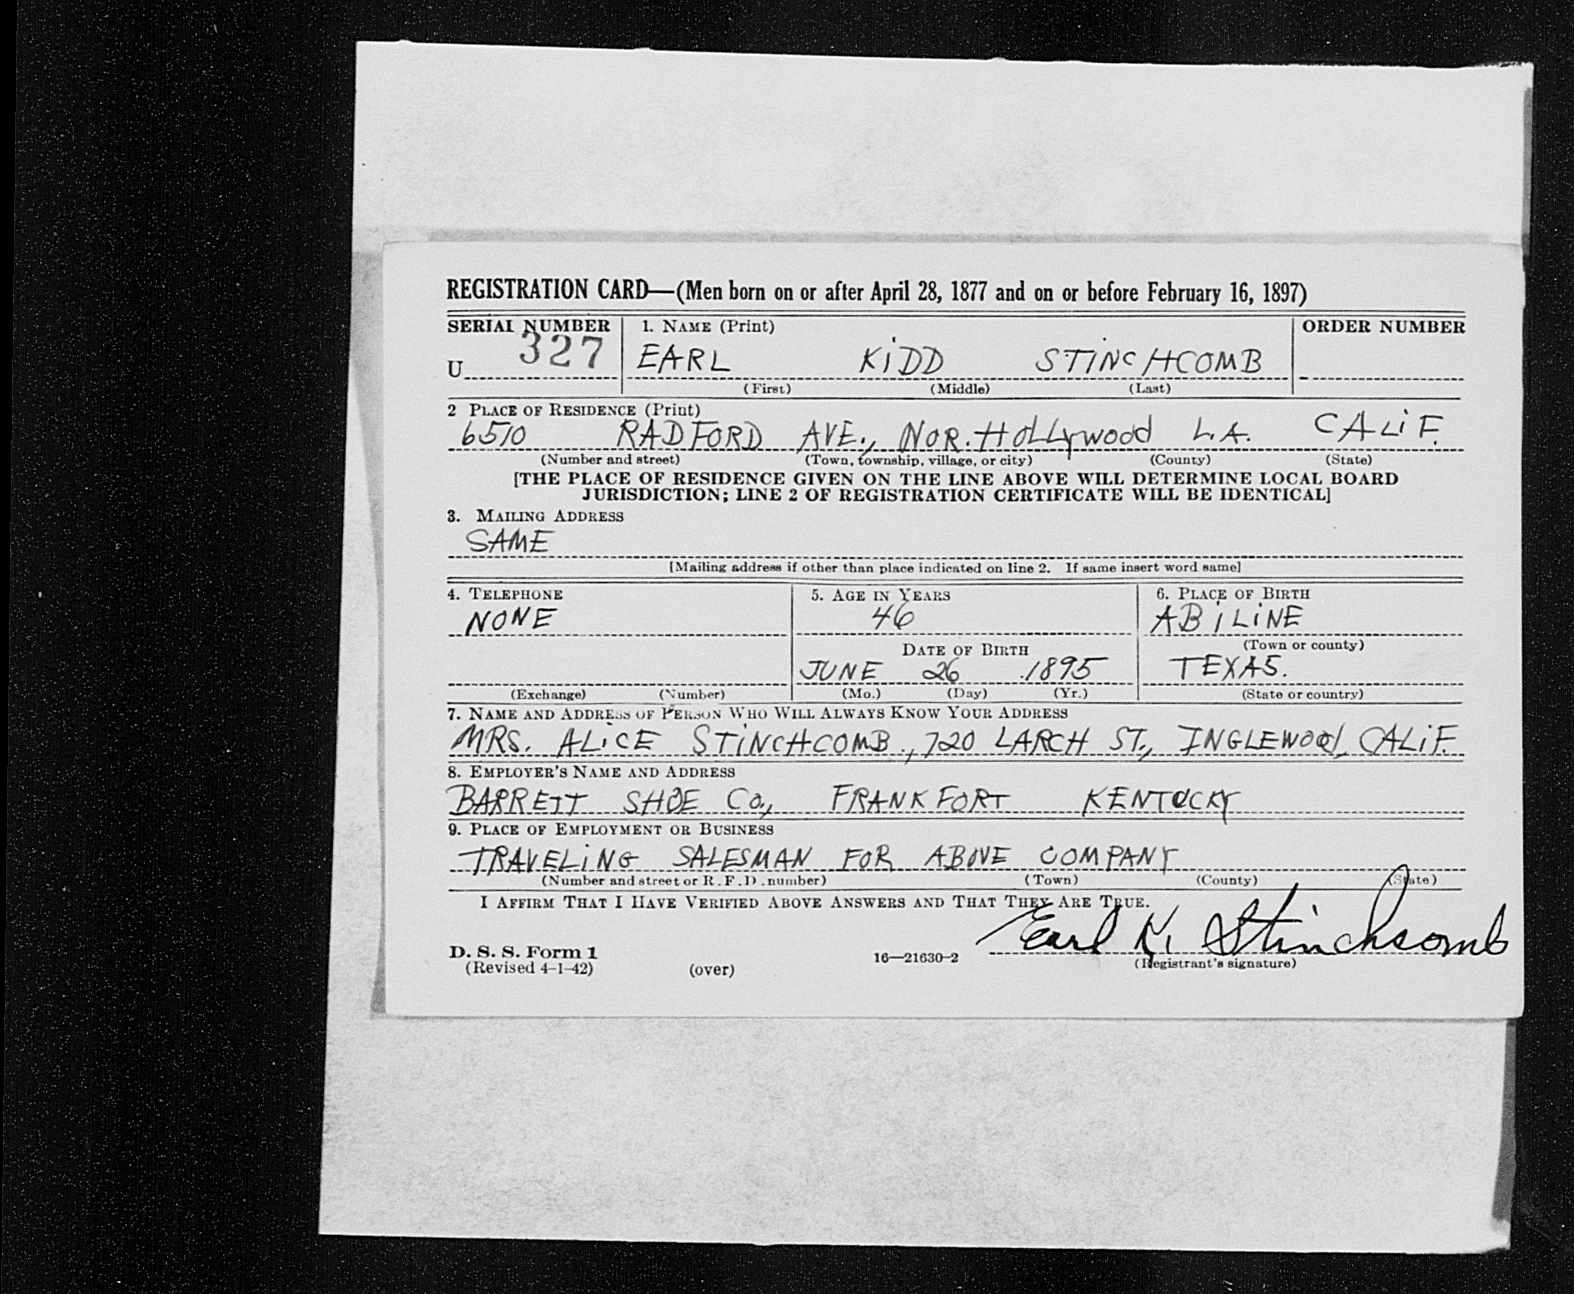 REGISTRATION CARD—(Men born on or after April 28, 1877 and on or before February 16, 1897)
SERIAL NUMBER 1. NAME (Print) ORDER NUMBER
U 327 EARL KIDD STINCHCOMB
(First) (Middle) (Last)
2 PLACE OF RESIDENCE (Print)
6510 RADFORD AVE., NOR. HOLLYWOOD L.A. CALIF.
(Number and street) (Town, township, village, or city) (County) (State)
[THE PLACE OF RESIDENCE GIVEN ON THE LINE ABOVE WILL DETERMINE LOCAL BOARD
JURISDICTION; LINE 2 OF REGISTRATION CERTIFICATE WILL BE IDENTICAL]
3. MAILING ADDRESS
SAME
[Mailing address if other than place indicated on line 2. If same insert word same]
4. TELEPHONE 5. AGE IN YEARS 6. PLACE OF BIRTH
NONE 46 ABILINE
DATE OF BIRTH (Town or county)
JUNE 26 1895 TEXAS.
(Exchange) (Number) (Mo.) (Day) (Yr.) (State or country)
7. NAME AND ADDRESS OF PERSON WHO WILL ALWAYS KNOW YOUR ADDRESS
MRS. ALICE STINCHCOMB., 720 LARCH ST., INGLEWOOD, CALIF.
8. EMPLOYER'S NAME AND ADDRESS
BARRETT SHOE CO., FRANKFORT KENTUCKY
9. PLACE OF EMPLOYMENT OR BUSINESS
TRAVELING SALESMAN FOR ABOVE COMPANY
(Number and street or R. F. D. number) (Town) (County) (State)
I AFFIRM THAT I HAVE VERIFIED ABOVE ANSWERS AND THAT THEY ARE TRUE.
Earl K. Stinchcomb
D. S. S. Form 1
(Revised 4-1-42) (over) 16—21630-2 (Registrant's signature)